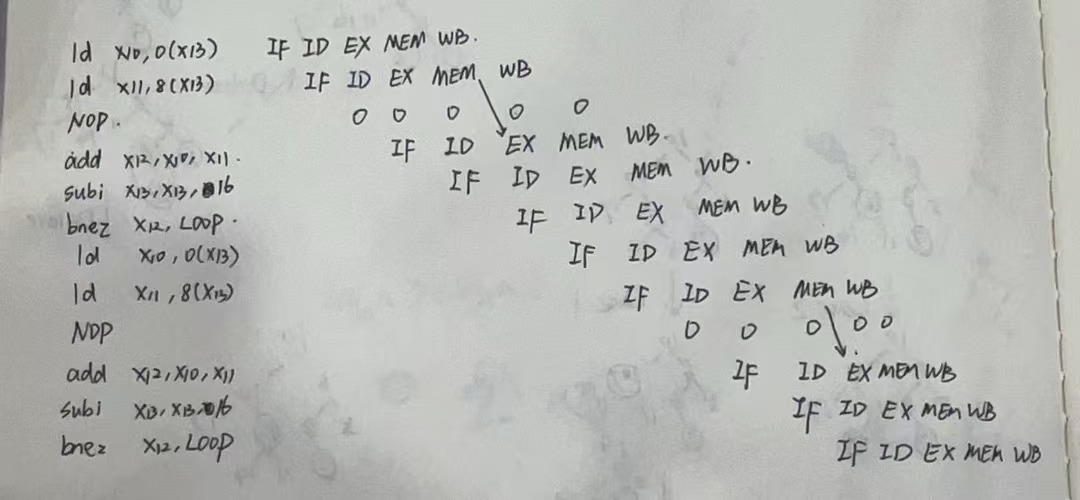 ld x10, 0(x13) IF ID EX MEM WB.
ld x11, 8(x13) IF ID EX MEM WB
NOP. 0 0 0 0 0
add x12, x10, x11. IF ID EX MEM WB.
subi x13, x13, 16 IF ID EX MEM WB.
bnez x12, LOOP. IF ID EX MEM WB
ld x10, 0(x13) IF ID EX MEM WB
ld x11, 8(x13) IF ID EX MEM WB
NOP 0 0 0 0 0
add x12, x10, x11 IF ID EX MEM WB
subi x13, x13, 16 IF ID EX MEM WB
bnez x12, LOOP IF ID EX MEM WB